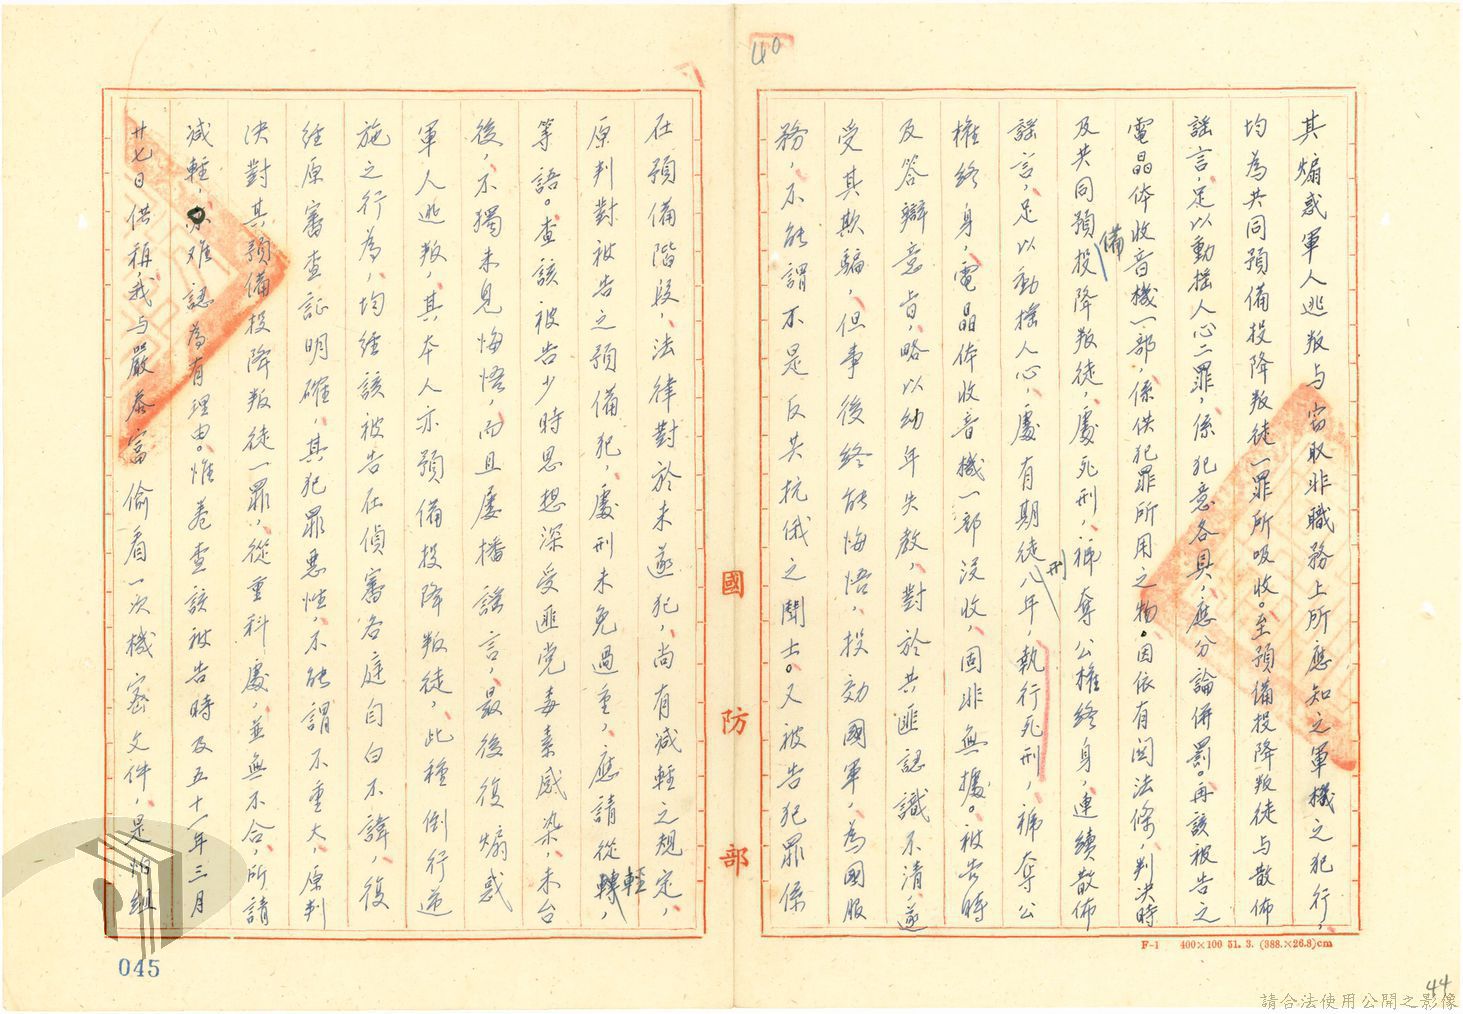 40
其煽惑軍人逃叛与窃取非職務上所應知之軍機之犯行，
均為共同預備投降叛徒一罪所吸收。至預備投降叛徒与散佈
謡言，足以動搖人心二罪，係犯意各具，應分論併罰。再該被告之
電晶体收音機一部，係供犯罪所用之物。因依有関法條，判決時
及共同預備投降叛徒，處死刑，褫奪公權終身，連續散佈
謡言，足以動搖人心，處有期徒刑八年，執行死刑，褫奪公
權終身，電晶体收音機一部沒收，固非無據。被告時
及答辯意旨，略以幼年失教，對於共匪認識不清，遂
受其欺騙，但事後終能悔悟，投効國軍，為國服
務，不能謂不是反共抗俄之鬪士。又被告犯罪係
在預備階段，法律對於未遂犯，尚有減輕之規定，
原判對被告之預備犯，處刑未免過重，應請從輕，
等語。查該被告少時思想深受匪党毒素感染，未台
後，不獨未見悔悟，而且屡播謡言，最後復煽惑
軍人逃叛，其本人亦預備投降叛徒，此種倒行逆
施之行為，均經該被告在偵審各庭自白不諱，復
經原審查証明確，其犯罪悪性，不能謂不重大，原判
決對其預備投降叛徒一罪，從重科處，並無不合，所請
減輕，亦难認為有理由。惟卷查該被告時及五十一年三月
廿七日供稱，我与嚴泰富偷看一次機密文件，是怕組
國防部
F-1 400×100 51. 3. (388.×26.8)cm
045
44
請合法使用公開之影像